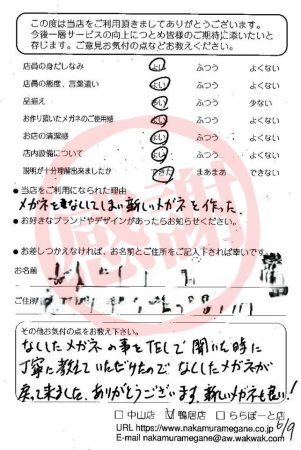 この度は当店をご利用頂きましてありがとうございます。
今後一層サービスの向上につとめ皆様のご期待に添いたいと
存じます。ご意見お気付の点などお教えください。
店員の身だしなみ よい ふつう よくない
店員の態度、言葉遣い よい ふつう よくない
品揃え 多い ふつう 少ない
お作り頂いたメガネのご使用感 よい ふつう よくない
お店の清潔感 よい ふつう よくない
店内設備について よい ふつう よくない
説明が十分理解出来ましたか できた まあまあ できない
●当店をご利用になられた理由
メガネをなくしてしまい新しいメガネを作った
●お好きなブランドやデザインがあったらお知らせください。
●お差しつかえなければ、お名前とご住所をご記入下されば幸いです。
お名前
ご住所
その他お気付の点をお教え下さい。
なくしたメガネの事をTELで聞いた時に
丁寧に教えていただけたので なくしたメガネが
戻って来ました。ありがとうございます。新しいメガネも良い!
中山店 鴨居店 ららぽーと店
URL https://www.nakamuramegane.co.jp
E-mail nakamuramegane@aw.wakwak.com
6/9